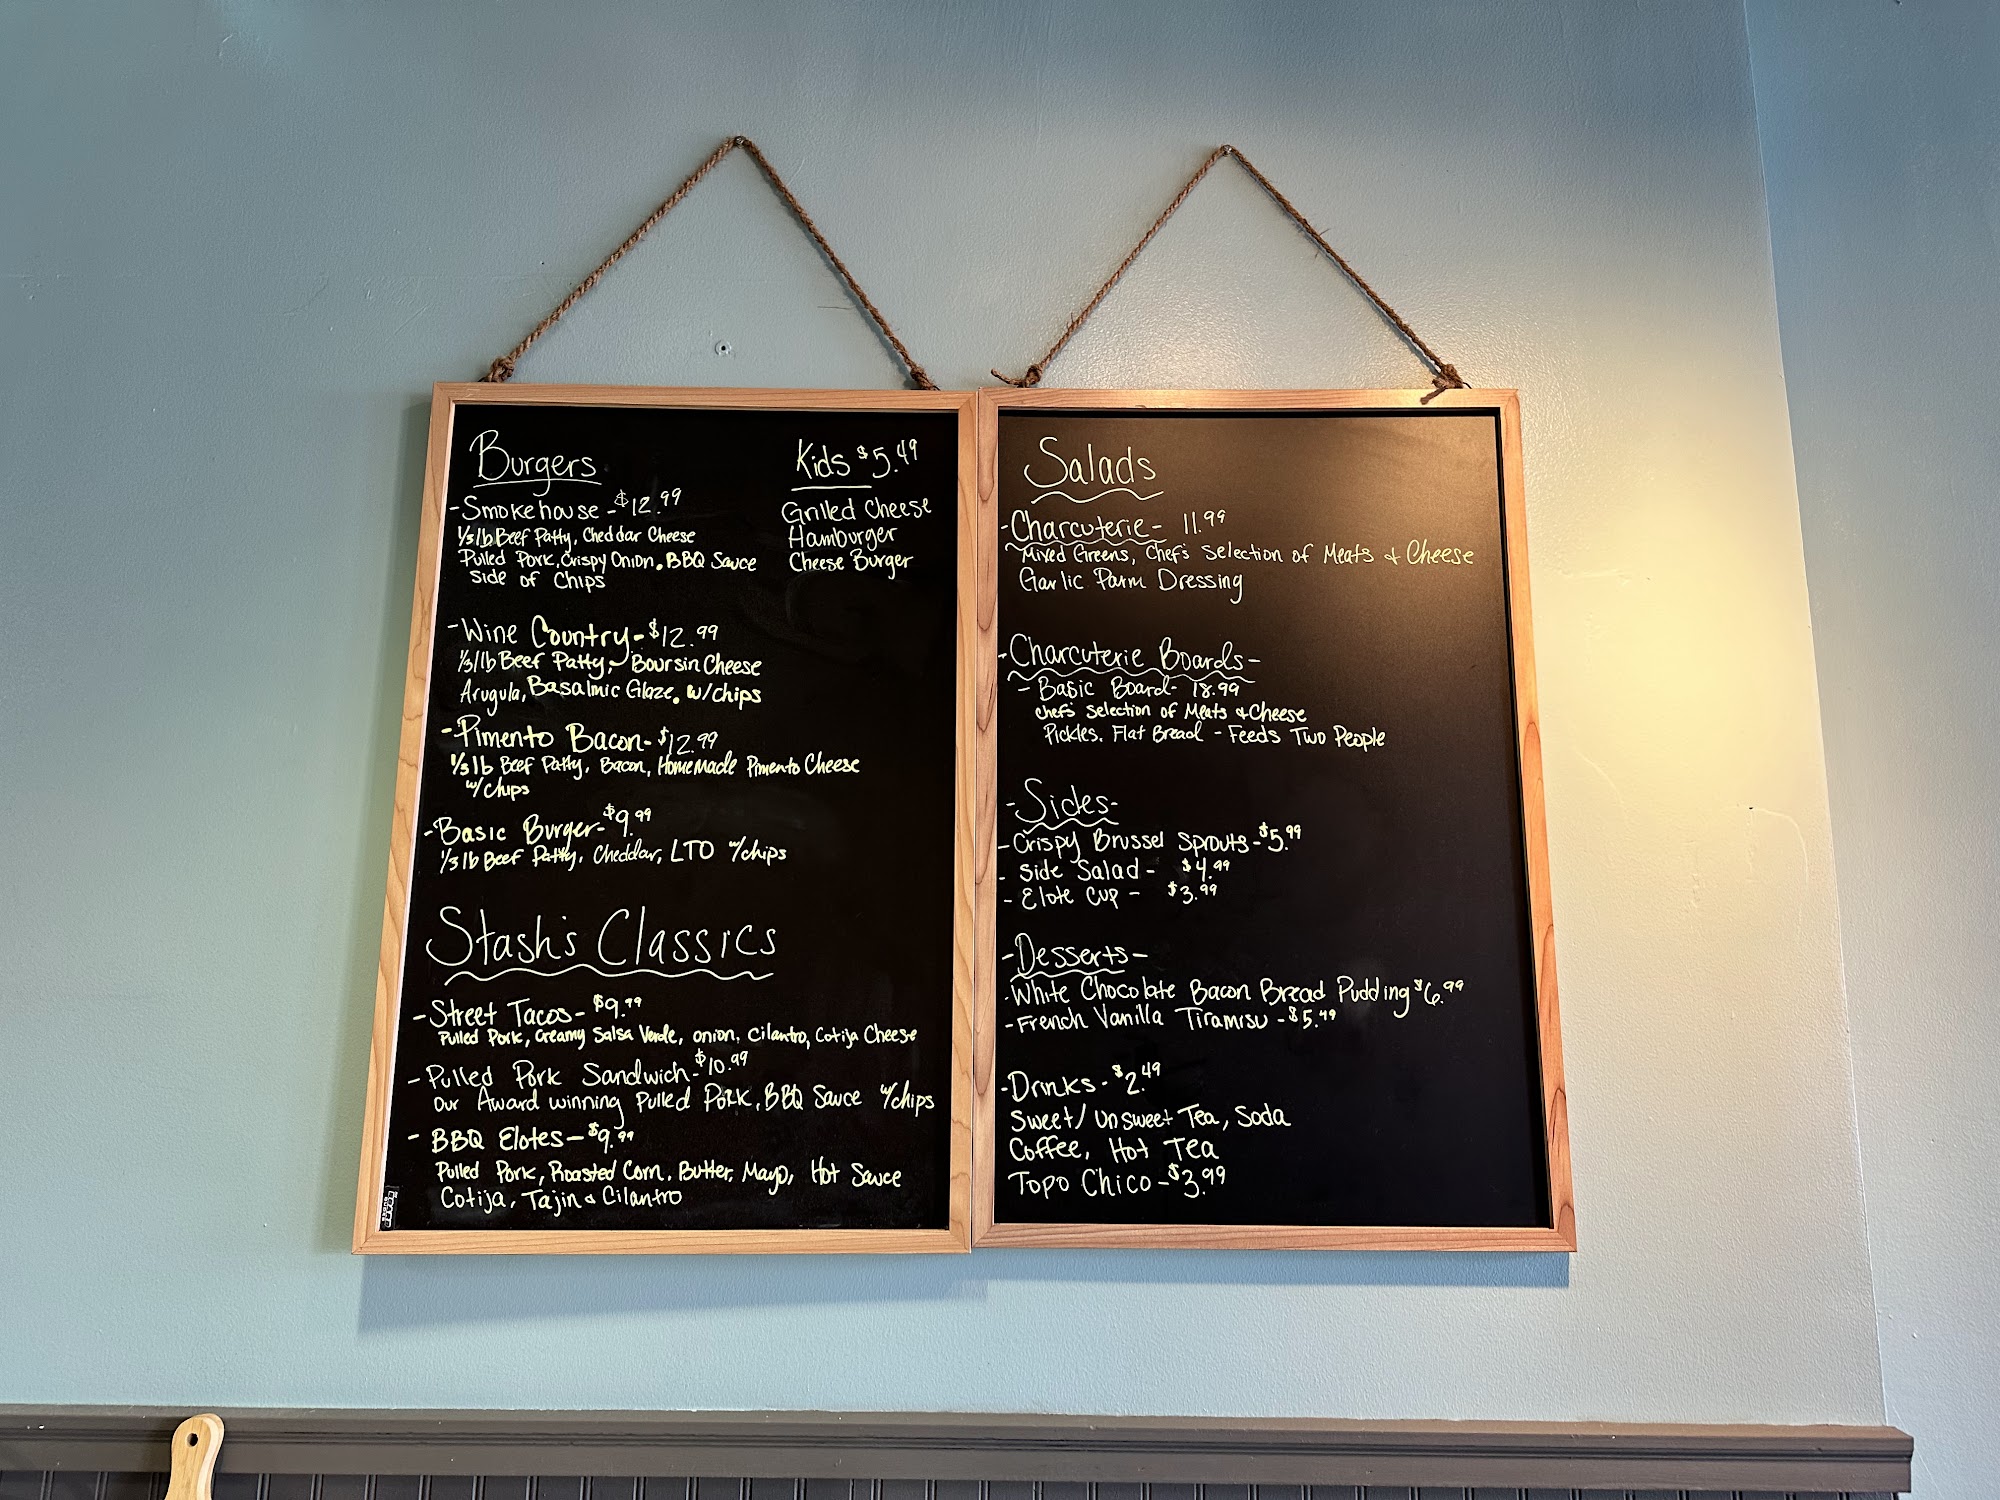 Burgers
-Smokehouse-$12.99
1/3lb Beef Patty, Cheddar Cheese
Pulled Pork, Crispy Onion, BBQ Sauce
Side of Chips
-Wine Country-$12.99
1/3lb Beef Patty, Boursin Cheese
Arugula, Basalmic Glaze. w/chips
-Pimento Bacon-$12.99
1/3lb Beef Patty, Bacon, HomeMade Pimento Cheese
w/chips
-Basic Burger-$9.99
1/3lb Beef Patty, Cheddar, LTO w/chips
Kids $5.49
Grilled Cheese
Hamburger
Cheese Burger
Stash's Classics
-Street Tacos-$9.99
Pulled Pork, Creamy Salsa Verde, onion, Cilantro, Cotija Cheese
-Pulled Pork Sandwich-$10.99
Our Award winning Pulled Pork, BBQ Sauce w/chips
- BBQ Elotes-$9.99
Pulled Pork, Roasted Corn, Butter, Mayo, Hot Sauce
Cotija, Tajin & Cilantro
Salads
-Charcuterie- 11.99
Mixed Greens, Chef's Selection of Meats & Cheese
Garlic Parm Dressing
-Charcuterie Boards-
- Basic Board- 18.99
Chef's Selection of Meats & Cheese
Pickles, Flat Bread - Feeds Two People
-Sides-
-Crispy Brussel Sprouts-$5.99
- Side Salad- $4.99
- Elote Cup - $3.99
-Desserts-
-White Chocolate Bacon Bread Pudding $6.99
-French Vanilla Tiramisu-$5.49
-Drinks-$2.49
Sweet/Unsweet Tea, Soda
Coffee, Hot Tea
Topo Chico-$3.99